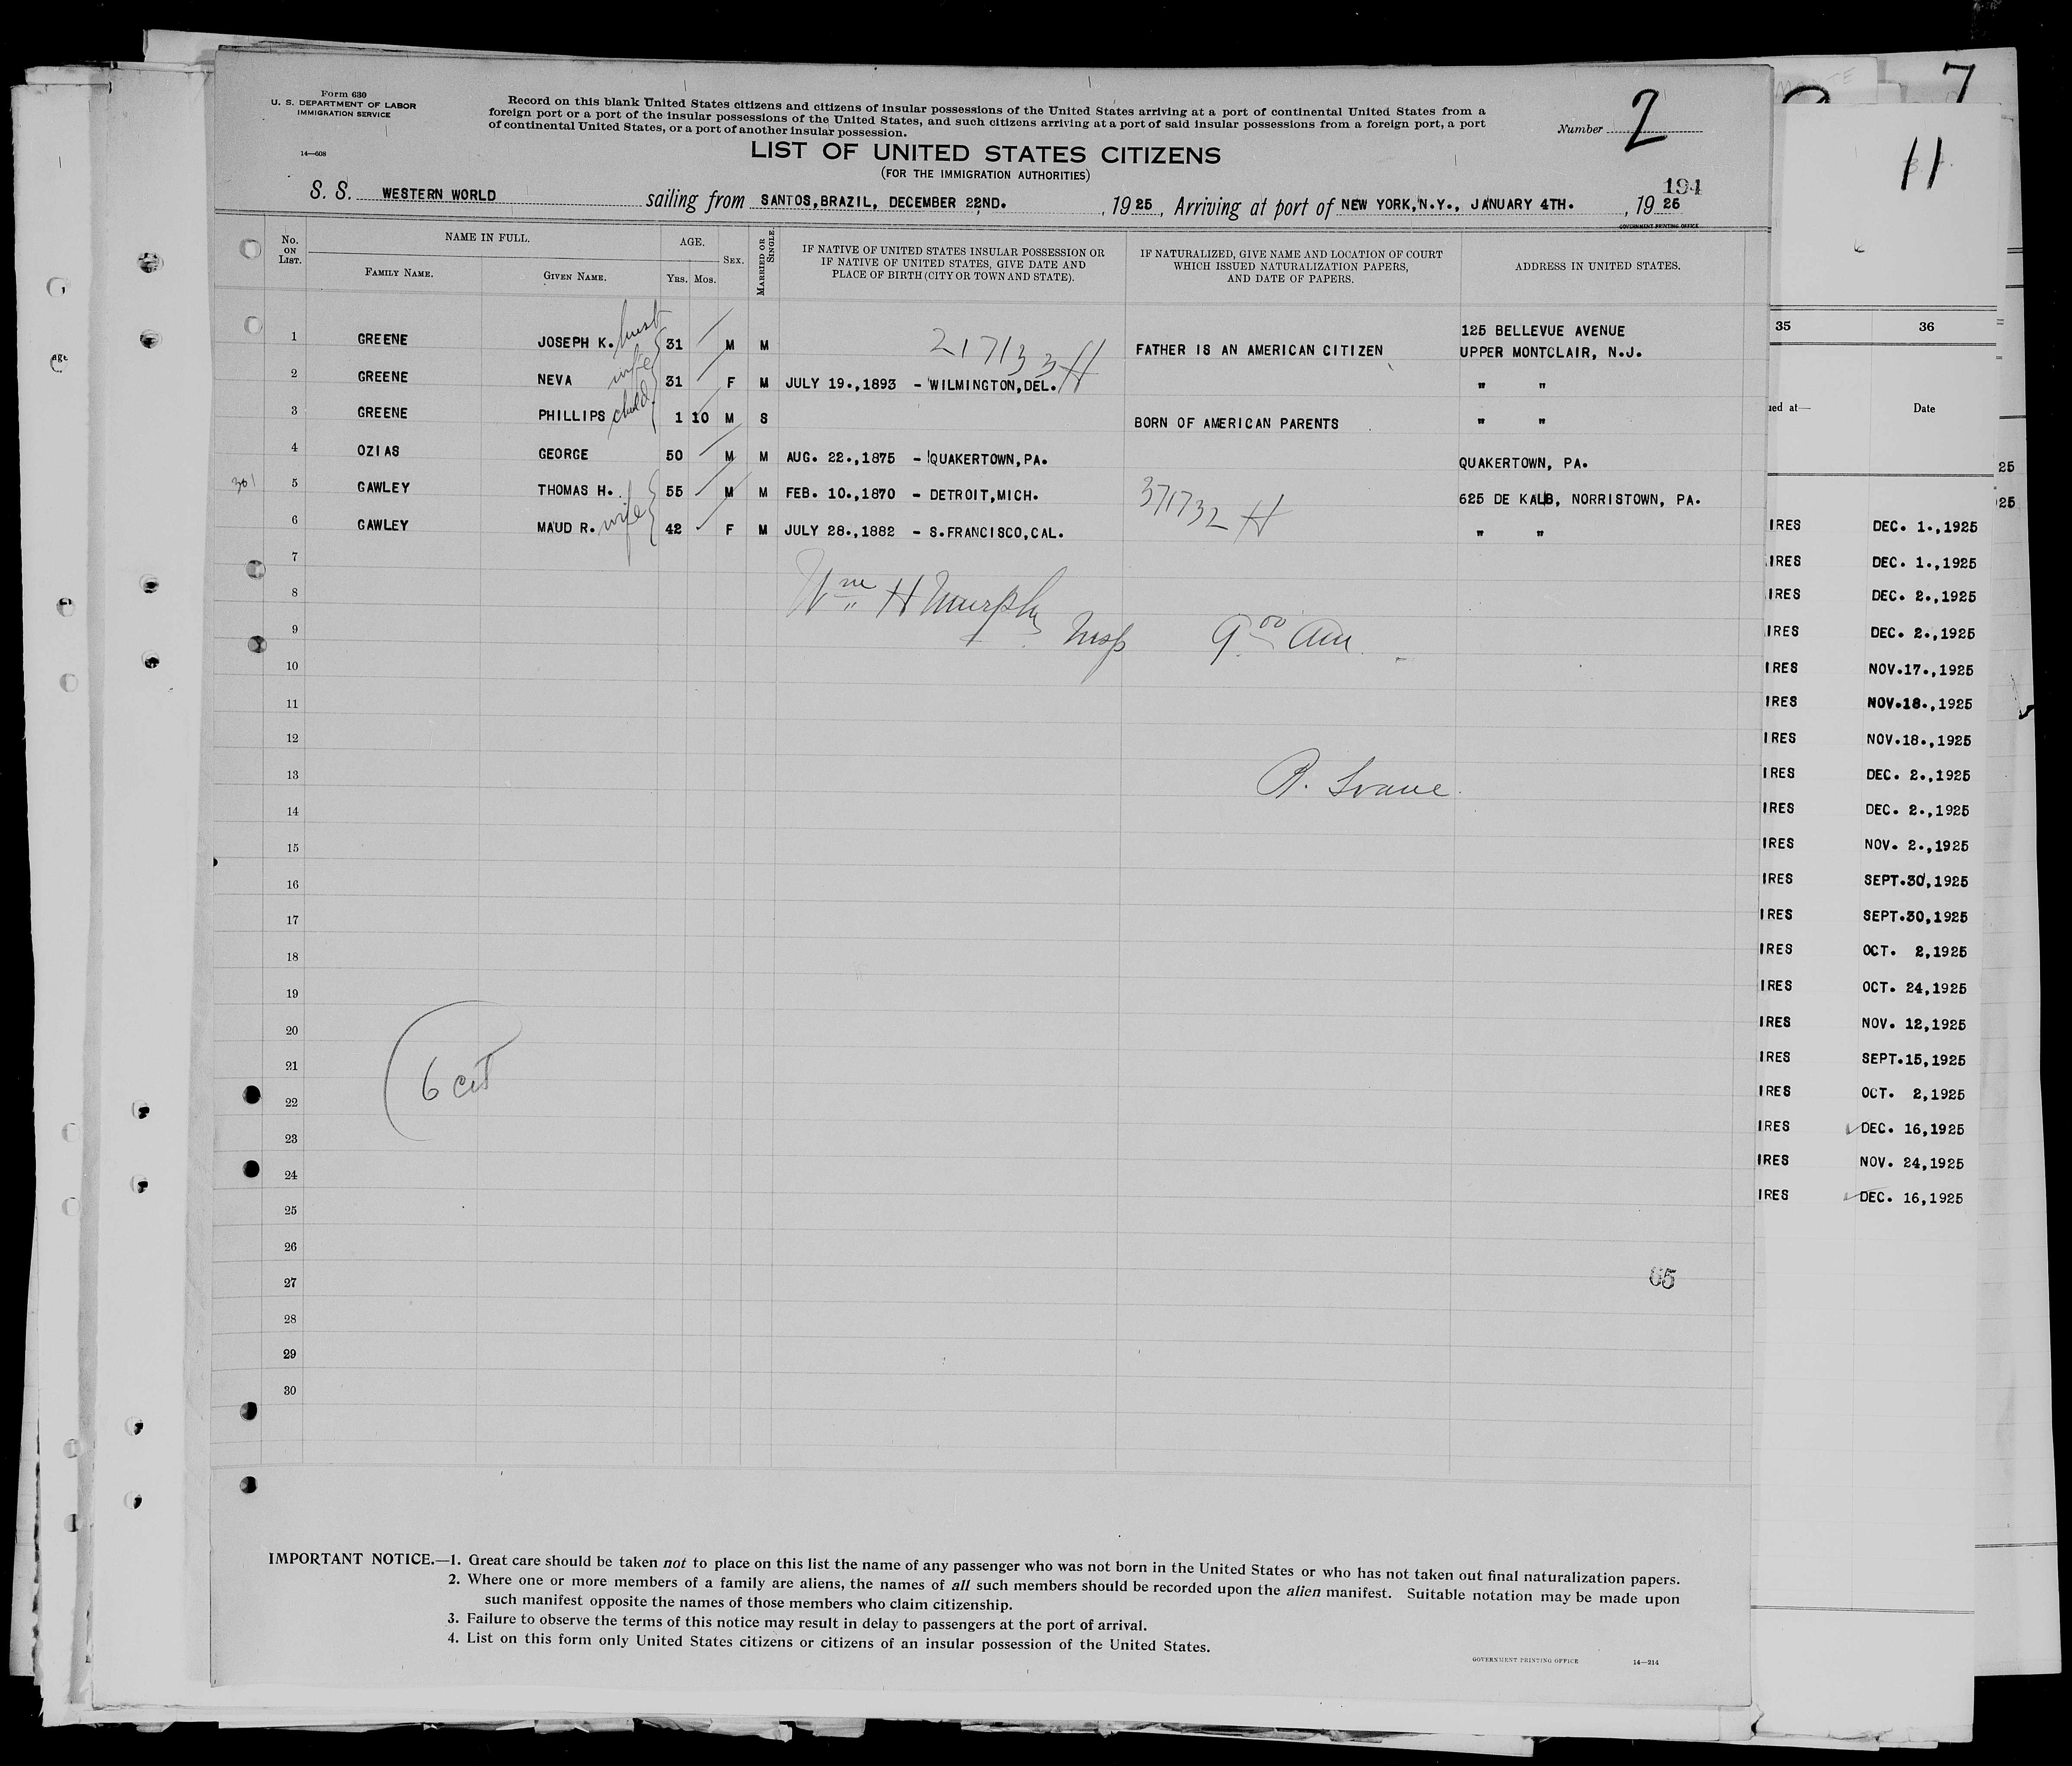 Form 630
U. S. DEPARTMENT OF LABOR
IMMIGRATION SERVICE
14—608
Record on this blank United States citizens and citizens of insular possessions of the United States arriving at a port of continental United States from a
foreign port or a port of the insular possessions of the United States, and such citizens arriving at a port of said insular possessions from a foreign port, a port
of continental United States, or a port of another insular possession.
Number 2
7
11
LIST OF UNITED STATES CITIZENS
(FOR THE IMMIGRATION AUTHORITIES)
194
S. S. WESTERN WORLD sailing from SANTOS, BRAZIL, DECEMBER 22ND. , 1925 , Arriving at port of NEW YORK, N.Y., JANUARY 4TH. , 1926
GOVERNMENT PRINTING OFFICE
No. ON LIST. NAME IN FULL. FAMILY NAME. GIVEN NAME. AGE. Yrs. Mos. SEX. MARRIED OR SINGLE IF NATIVE OF UNITED STATES INSULAR POSSESSION OR IF NATIVE OF UNITED STATES, GIVE DATE AND PLACE OF BIRTH (CITY OR TOWN AND STATE). IF NATURALIZED, GIVE NAME AND LOCATION OF COURT WHICH ISSUED NATURALIZATION PAPERS, AND DATE OF PAPERS. ADDRESS IN UNITED STATES.
1 GREENE JOSEPH K. husb 31 M M 217133H FATHER IS AN AMERICAN CITIZEN 125 BELLEVUE AVENUE UPPER MONTCLAIR, N.J.
2 GREENE NEVA wife 31 F M JULY 19.,1893 - WILMINGTON, DEL. " "
3 GREENE PHILLIPS child 1 10 M S BORN OF AMERICAN PARENTS " "
4 OZIAS GEORGE 50 M M AUG. 22.,1875 - QUAKERTOWN, PA. QUAKERTOWN, PA.
5 GAWLEY THOMAS H. 55 M M FEB. 10.,1870 - DETROIT, MICH. 371732 H 625 DE KALB, NORRISTOWN, PA.
6 GAWLEY MAUD R. wife 42 F M JULY 28.,1882 - S.FRANCISCO, CAL. " "
7
8 Wm H Murphy
9 Insp 9 00 am
10
11
12
13
14
15
16
17
18
19
20
21 6 cit
22
23
24
25
26
27 65
28
29
30
IMPORTANT NOTICE.—1. Great care should be taken not to place on this list the name of any passenger who was not born in the United States or who has not taken out final naturalization papers.
2. Where one or more members of a family are aliens, the names of all such members should be recorded upon the alien manifest. Suitable notation may be made upon
such manifest opposite the names of those members who claim citizenship.
3. Failure to observe the terms of this notice may result in delay to passengers at the port of arrival.
4. List on this form only United States citizens or citizens of an insular possession of the United States.
GOVERNMENT PRINTING OFFICE 14—214
35 36
ued at— Date
25
25
IRES DEC. 1.,1925
IRES DEC. 1.,1925
IRES DEC. 2.,1925
IRES DEC. 2.,1925
IRES NOV.17.,1925
IRES NOV.18.,1925
IRES NOV.18.,1925
IRES DEC. 2.,1925
IRES DEC. 2.,1925
IRES NOV. 2.,1925
IRES SEPT.30,1925
IRES SEPT.30,1925
IRES OCT. 2,1925
IRES OCT. 24,1925
IRES NOV. 12,1925
IRES SEPT.15,1925
IRES OCT. 2,1925
IRES DEC. 16,1925
IRES NOV. 24,1925
IRES DEC. 16,1925